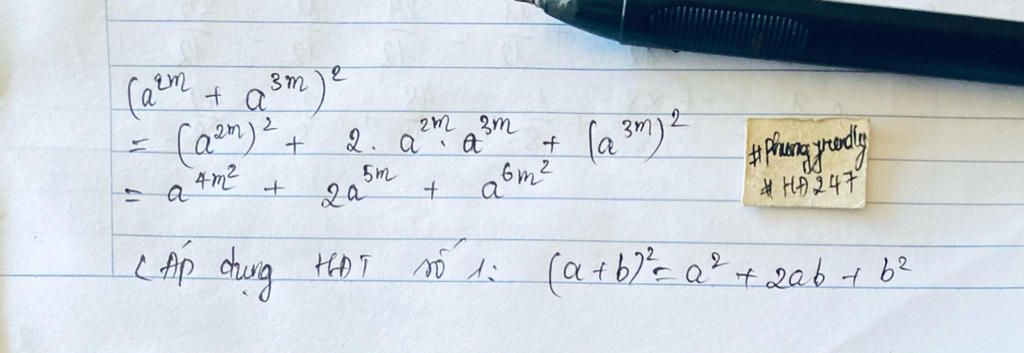 (a²ᵐ + a³ᵐ)²
= (a²ᵐ)² + 2 . a²ᵐ . a³ᵐ + (a³ᵐ)²
= a⁴ᵐ² + 2a⁵ᵐ + a⁶ᵐ²
#Phungyrendly
# HĐ247
( Áp dụng HĐT số 1: (a+b)² = a² + 2ab + b²